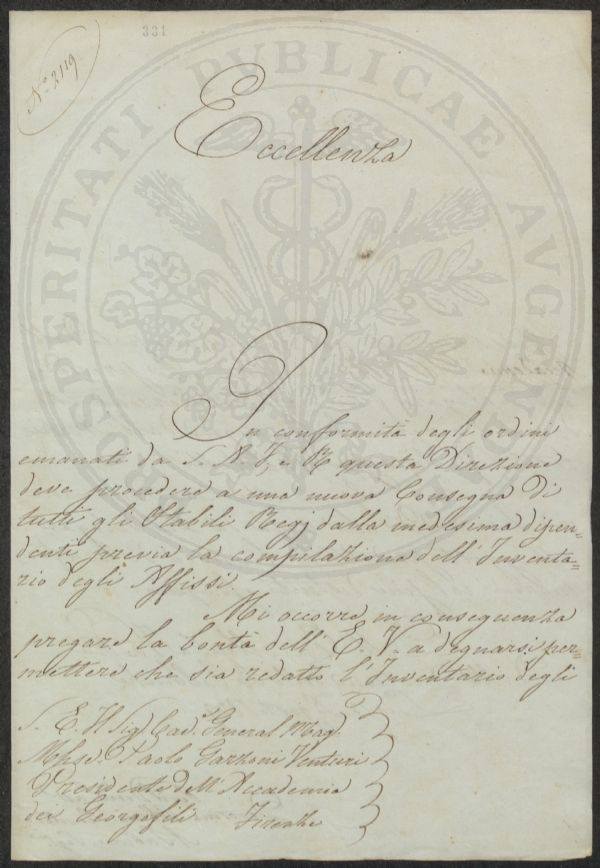 331
N.° 2119
PROSPERITATI PVBLICAE AVGENDAE
Eccellenza
In conformità degli ordini
emanati da S. A. I. e R. questa Direzione
deve procedere a una nuova Consegna di
tutti gli Stabili Regj dalla medesima dipen=
denti previa la compilazione dell'Inventa=
rio degli Affissi.
Mi occorre in conseguenza
pregare la bontà dell'E. V. a degnarsi per=
mettere che sia redatto l'Inventario degli
S. E. Il Sig. Cav. General Mag.
Mhse. Paolo Garzoni Venturi
Presidente dell'Accademia
dei Georgofili Firenze